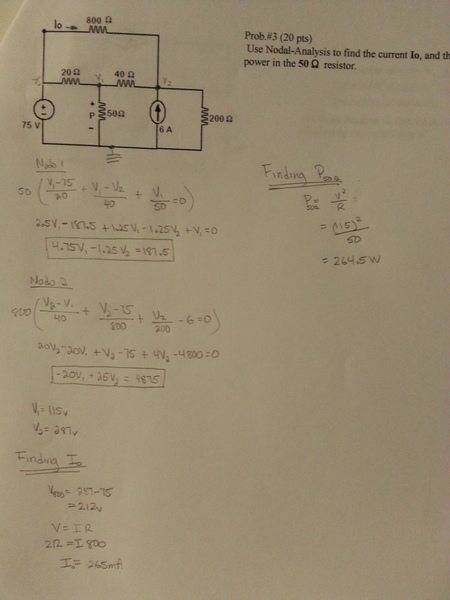 Io
800 Ω
Prob.#3 (20 pts)
Use Nodal-Analysis to find the current Io, and th
power in the 50 Ω resistor.
20 Ω V₁ 40 Ω V₂
75 V
+
P
−
50Ω
6 A
200 Ω
Node 1
50 ( V₁-75/20 + V₁-V₂/40 + V₁/50 = 0 )
2.5V₁ - 187.5 + 1.25V₁ - 1.25V₂ + V₁ = 0
4.75V₁ - 1.25V₂ = 187.5
Node 2
800 ( V₂-V₁/40 + V₂-75/800 + V₂/200 - 6 = 0 )
20V₂ - 20V₁ + V₂ - 75 + 4V₂ - 4800 = 0
-20V₁ + 25V₂ = 4875
V₁ = 115v
V₂ = 287v
Finding I₀
V800 = 287-75
= 212v
V = I R
212 = I 800
I₀ = 265mA
Finding P50Ω
P50Ω = V²/R =
= (115)²/50
= 264.5 W